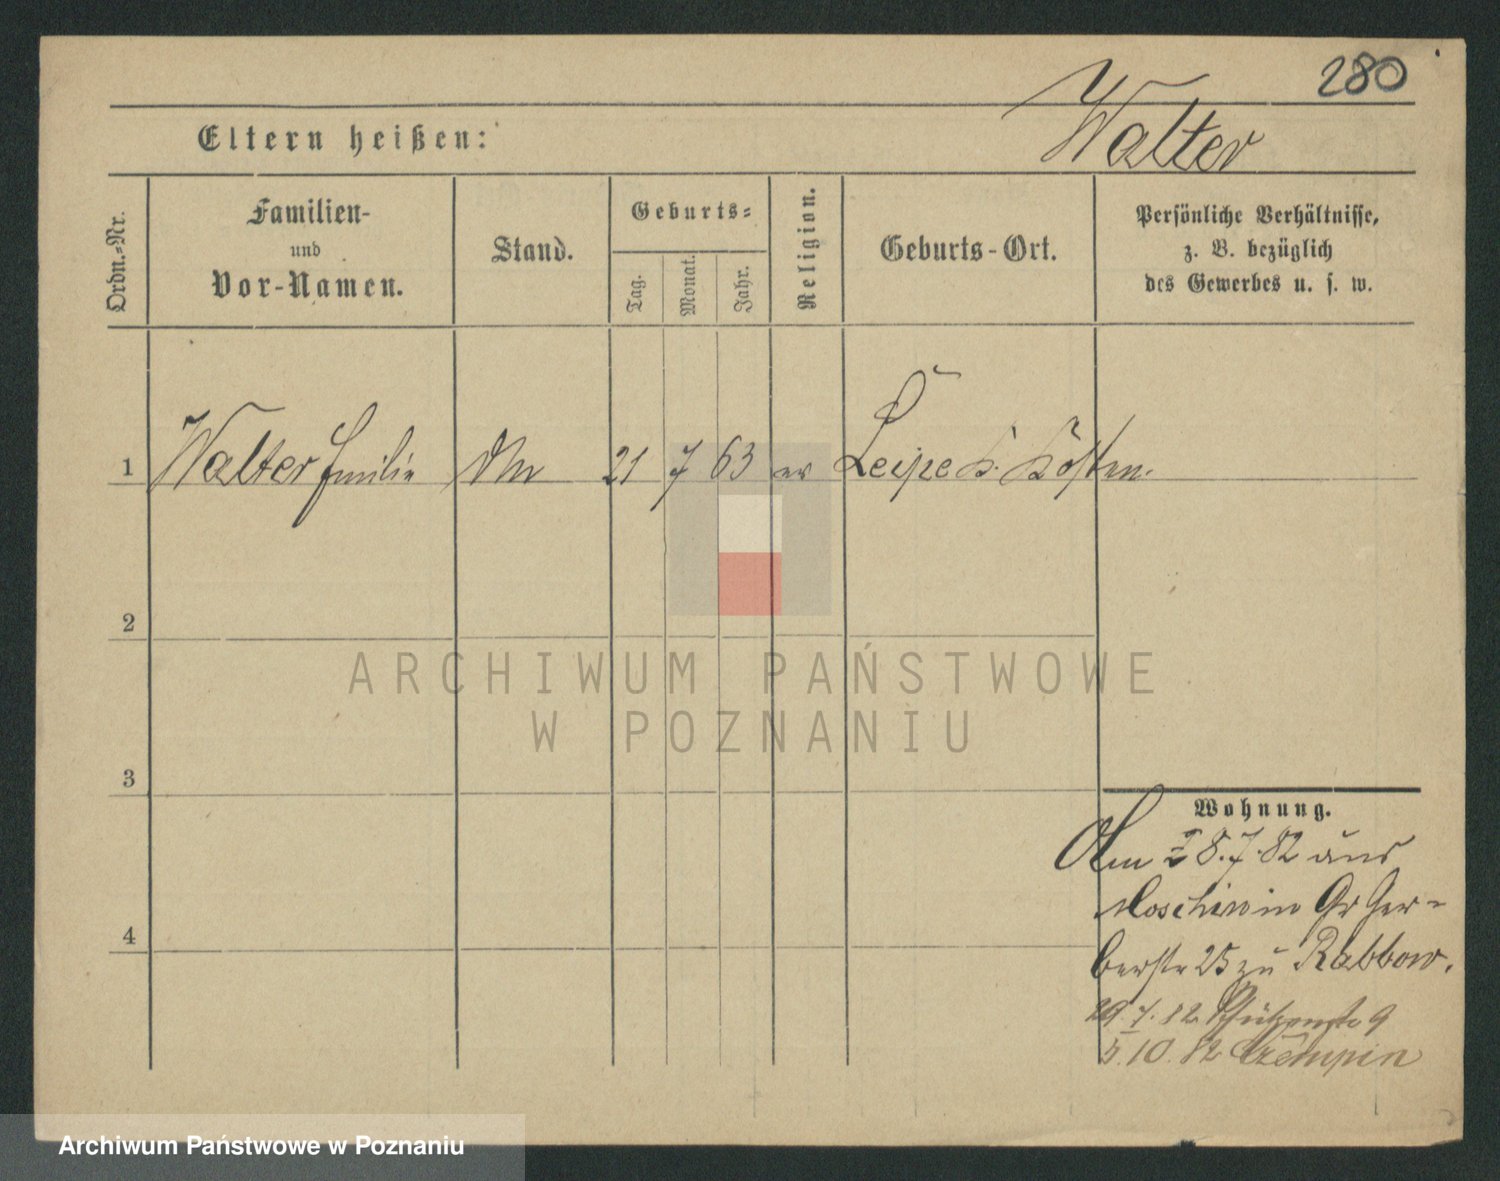 280
Walter
Eltern heißen:
Ordn.-Nr.
Familien-
und
Vor-Namen.
Stand.
Geburts-
Tag.
Monat.
Jahr.
Religion.
Geburts-Ort.
Persönliche Verhältnisse,
z. B. bezüglich
des Gewerbes u. s. w.
1 Walter Emilie 21 7 63 ev Leipe K. Kosten.
2
3
4
Wohnung.
8.7.82 aus
Moschin in Gr Ger-
berstr 25 zu Rabbow.
29.7.82 Schützenstr 9
5.10.82 Czempin
ARCHIWUM PAŃSTWOWE
W POZNANIU
Archiwum Państwowe w Poznaniu